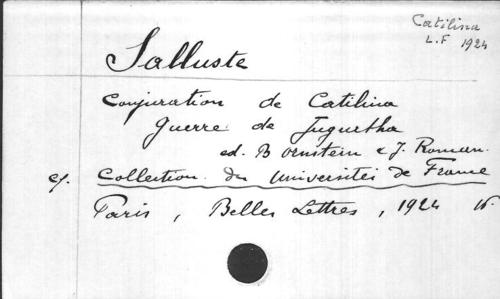 Catilina
L.F 1924
Salluste
Conjuration de Catilina
Guerre de Jugurtha
ed. B Ornstein & J. Roman.
cf. Collection des Universités de France
Paris, Belles Lettres, 1924